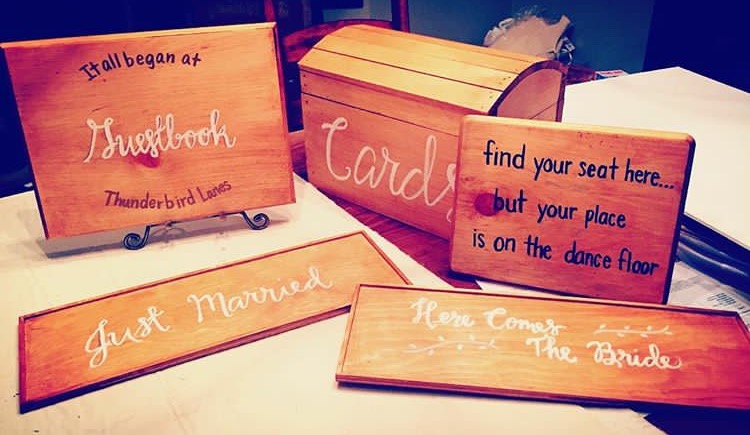 It all began at
Guestbook
Thunderbird Lanes
Cards
find your seat here...
but your place
is on the dance floor
Just Married
Here Comes
The Bride